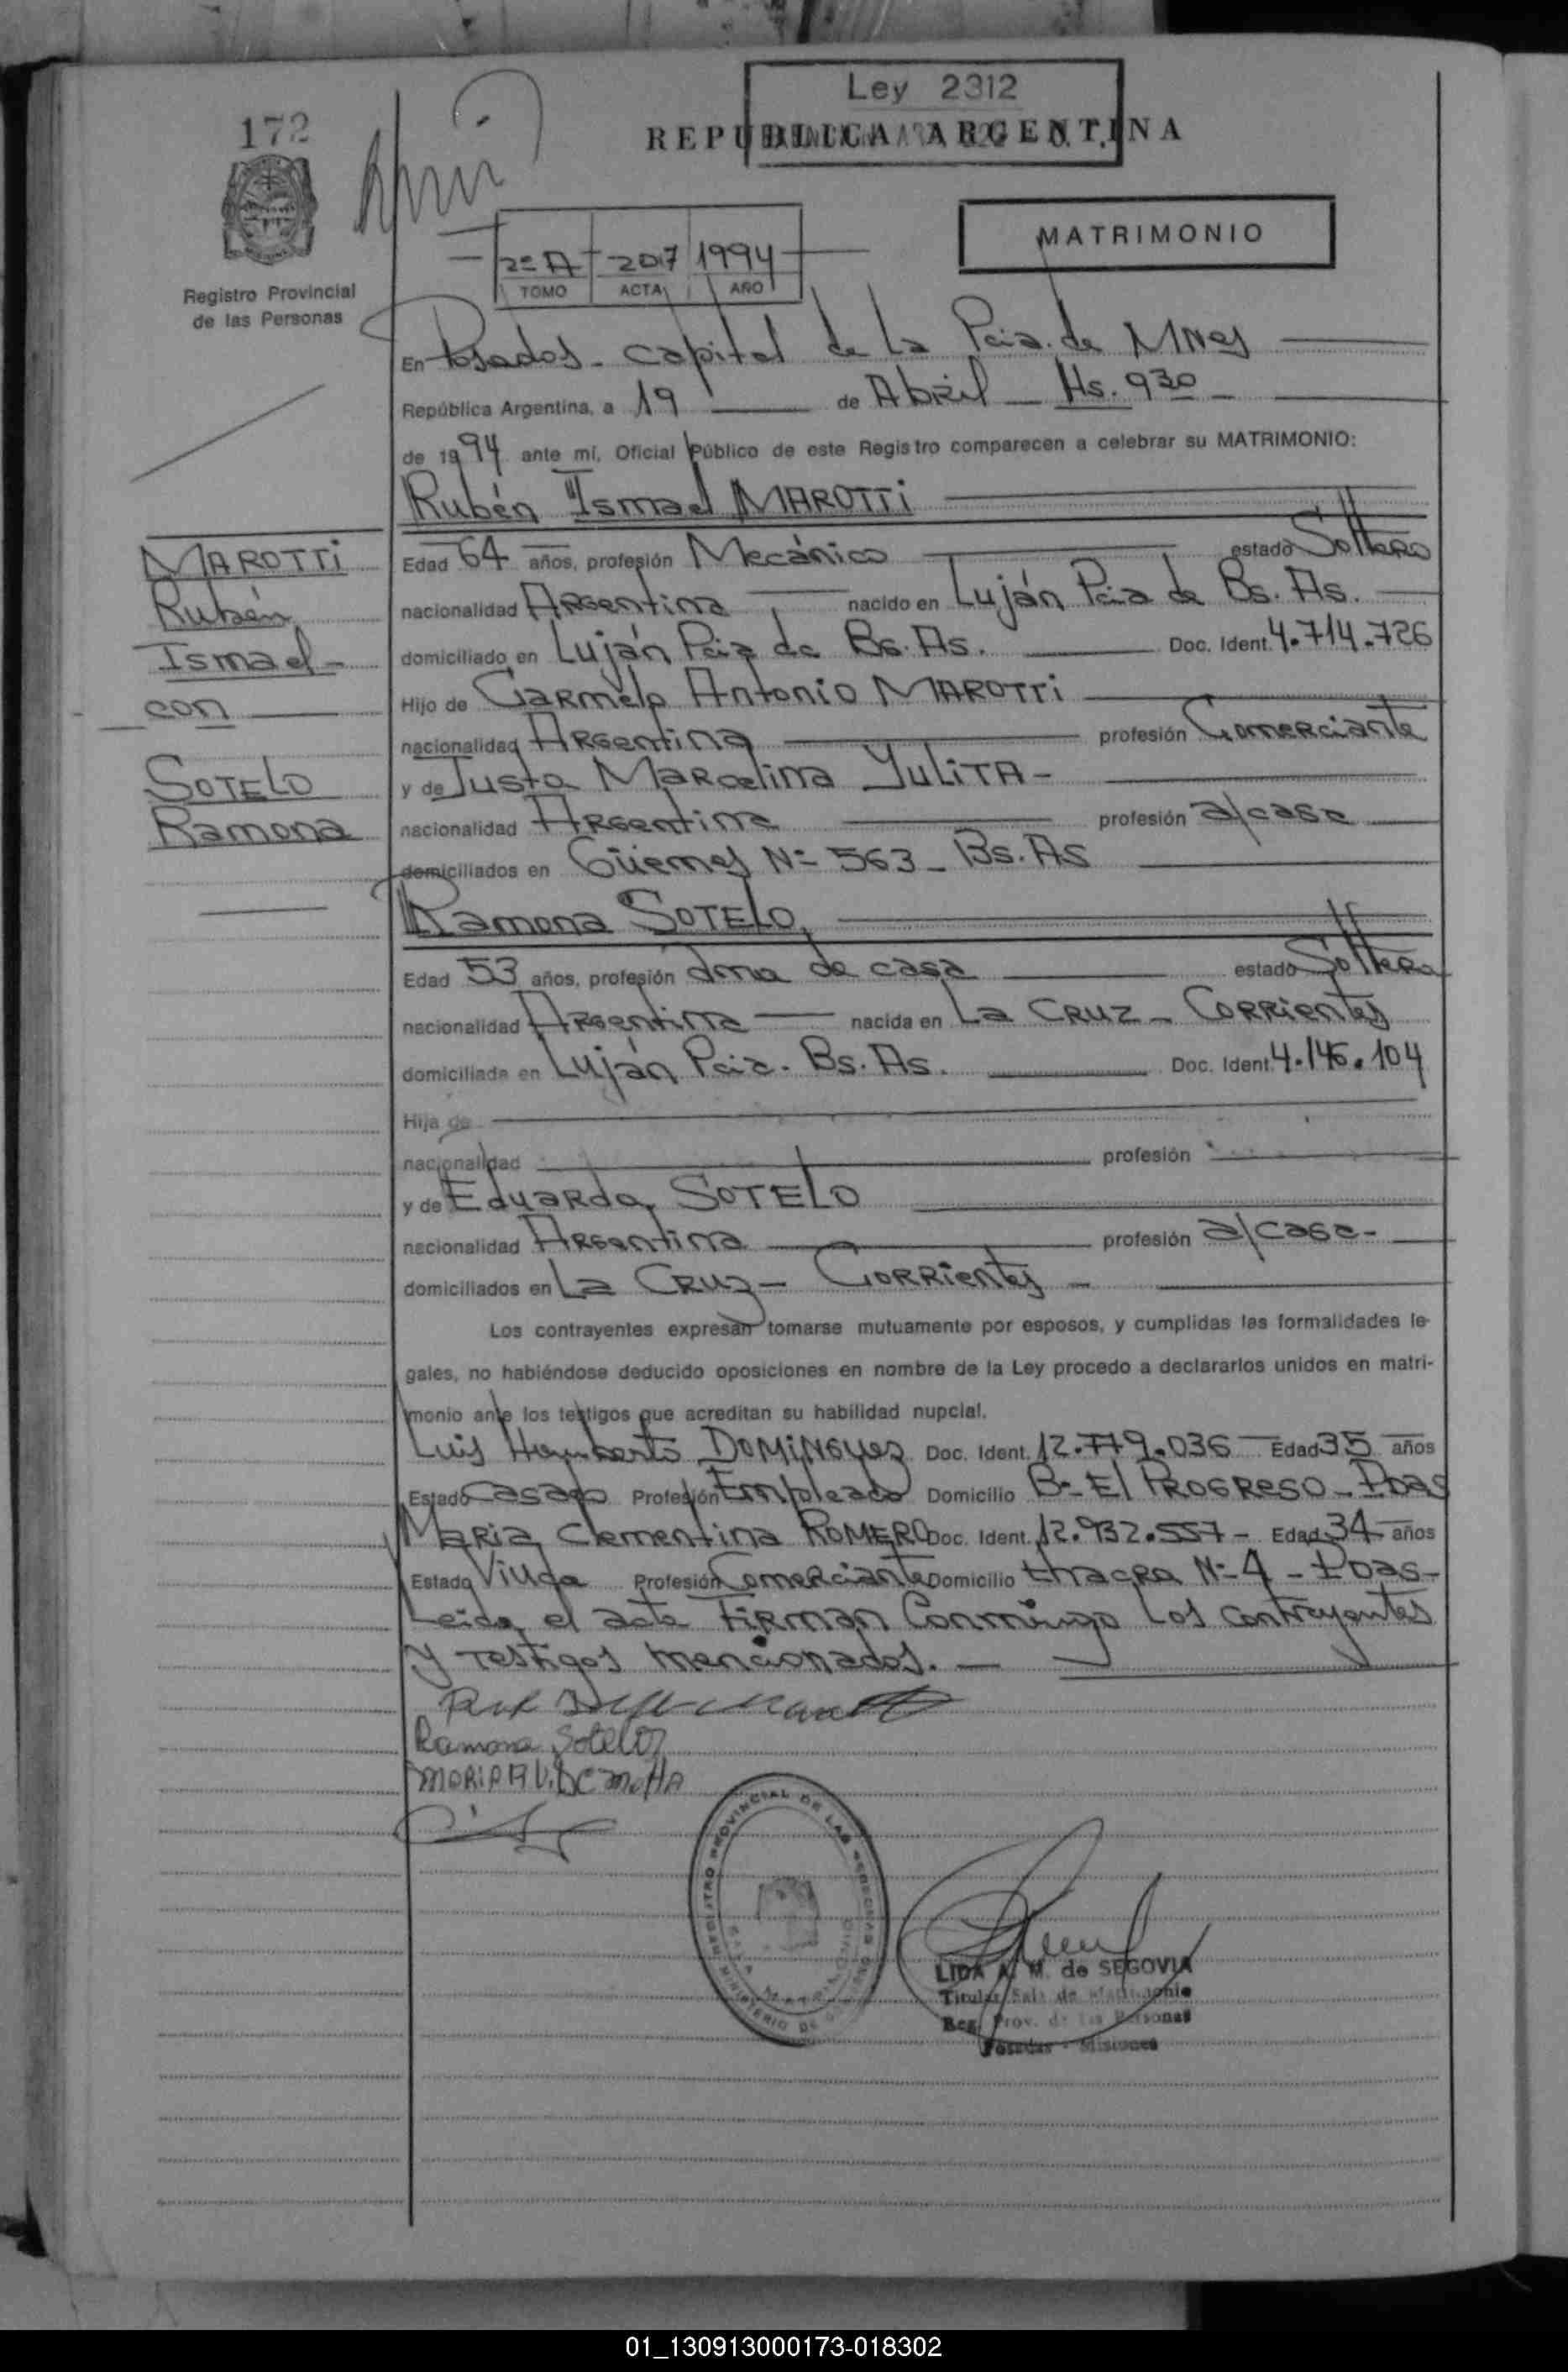 Ley 2312
172
REPUBLICA ARGENTINA
MATRIMONIO
2º A 207 1994
TOMO ACTA AÑO
Registro Provincial
de las Personas
En Posadas - Capital de La Pcia. de MNes
República Argentina, a 19 de Abril Hs. 930
de 1994 ante mí, Oficial Público de este Registro comparecen a celebrar su MATRIMONIO:
Rubén Ismael MAROTTi
MAROTTi
Rubén
Ismael -
con
SOTELO
Ramona
Edad 64 años, profesión Mecánico estado Soltero
nacionalidad Argentina nacido en Luján Pcia de Bs. As.
domiciliado en Luján Pcia de Bs. As. Doc. Ident. 4.714.726
Hijo de Carmelo Antonio MAROTTi
nacionalidad Argentina profesión Comerciante
y de Justa Marcelina YULITA -
nacionalidad Argentina profesión a/casa
domiciliados en Güemes Nº 563 - Bs. As
Ramona SOTELO
Edad 53 años, profesión ama de casa estado Soltera
nacionalidad Argentina nacida en La CRUZ - CORRientes
domiciliada en Luján Pcia. Bs. As. Doc. Ident. 4.146.104
Hija de
nacionalidad profesión
y de Eduarda SOTELO
nacionalidad Argentina profesión a/casa -
domiciliados en La CRUZ - CORRientes -
Los contrayentes expresan tomarse mutuamente por esposos, y cumplidas las formalidades le-
gales, no habiéndose deducido oposiciones en nombre de la Ley procedo a declararlos unidos en matri-
monio ante los testigos que acreditan su habilidad nupcial.
Luis Humberto DOMINGUEZ Doc. Ident. 12.779.036 Edad 35 años
Estado Casado Profesión Empleado Domicilio Bº El PROGRESO - Pdas
MARIA Clementina ROMERO Doc. Ident. 12.932.557 - Edad 34 años
Estado Viuda Profesión Comerciante Domicilio Chacra Nº 4 - Pdas -
Leida el acta FIRMAN Conmigo Los contrayentes
y Testigos mencionados. -
Ramona Sotelo
MARIA R V. DE MOTTA
REGISTRO PROVINCIAL DE LAS PERSONAS
MINISTERIO DE
LIDA A. M. de SEGOVIA
Titular Sala de Matrimonio
Reg. Prov. de las Personas
Posadas - Misiones
01_130913000173-018302